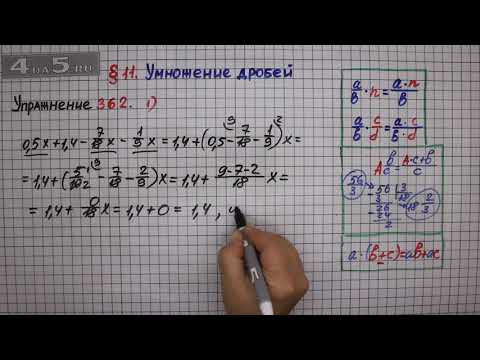 4DA5.RU
§ 11. Умножение дробей
Упражнение 362. 1)
0,5x + 1,4 - 7/18 x - 1/9 x = 1,4 + (0,5 - 7/18 - 1/9)x =
= 1,4 + (5/10 - 7/18 - 2/9)x = 1,4 + (9-7-2)/18 x =
= 1,4 + 0/18 x = 1,4 + 0 = 1,4, ч
a/b · n = a·n/b
a/b · c/d = a·c/b·d
A b/c = A·c+b/c
56/3
56 3
3 18
26
24
2
18 2/3
a · (b+c) = ab+ac